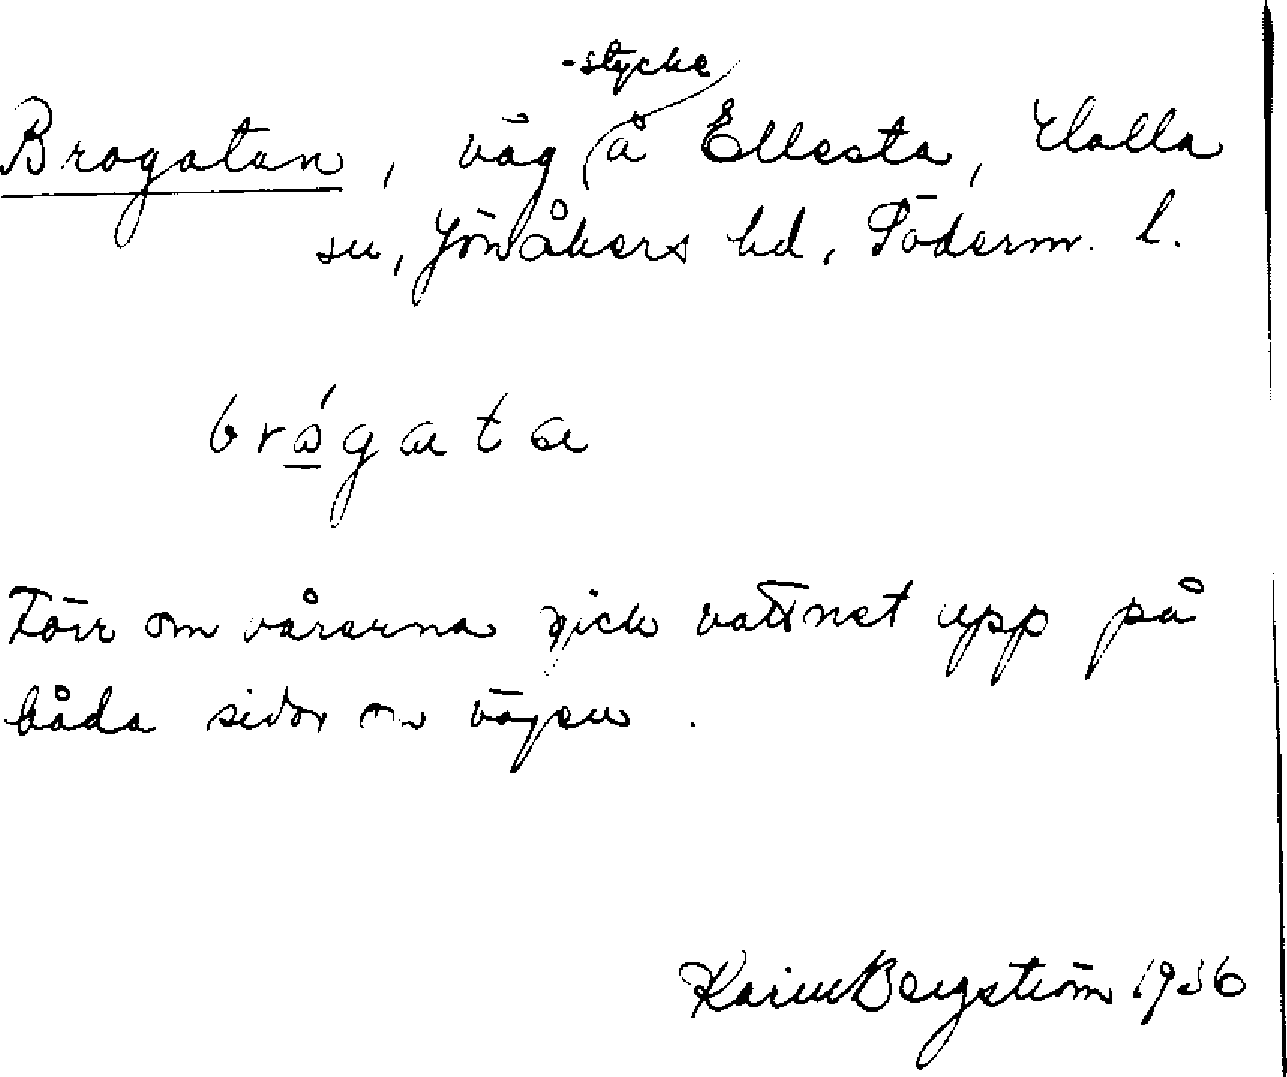 -stycke
Brogatan, väg å Ellesta, Halla
sn, Jönåkers hd, Söderm. l.
brógata
Förr om vårarna gick vattnet upp på
båda sidor om vägen.
Karin Bergström 1936